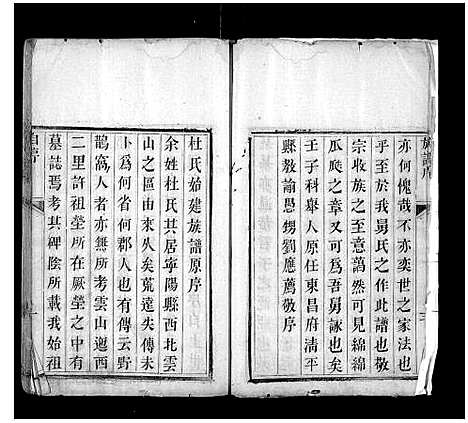 族譜序
亦何愧哉不亦奕世之家法也
乎至於我舅氏之作此譜也敬
宗收族之至意藹然可見綿綿
瓜瓞之章又可為吾舅詠也矣
壬子科舉人原任東昌府清平
縣教諭愚甥劉應薦敬序
杜氏始建族譜原序
余姓杜氏其居寧陽縣西北雲
山之區由來失矣蒐遠失傳未
卜為何省何郡人也有傳云野
鵲窩人者亦無所考雲山迤西
二里許祖塋所在厥塋之中有
墓誌焉考其碑陰所載我始祖
自序